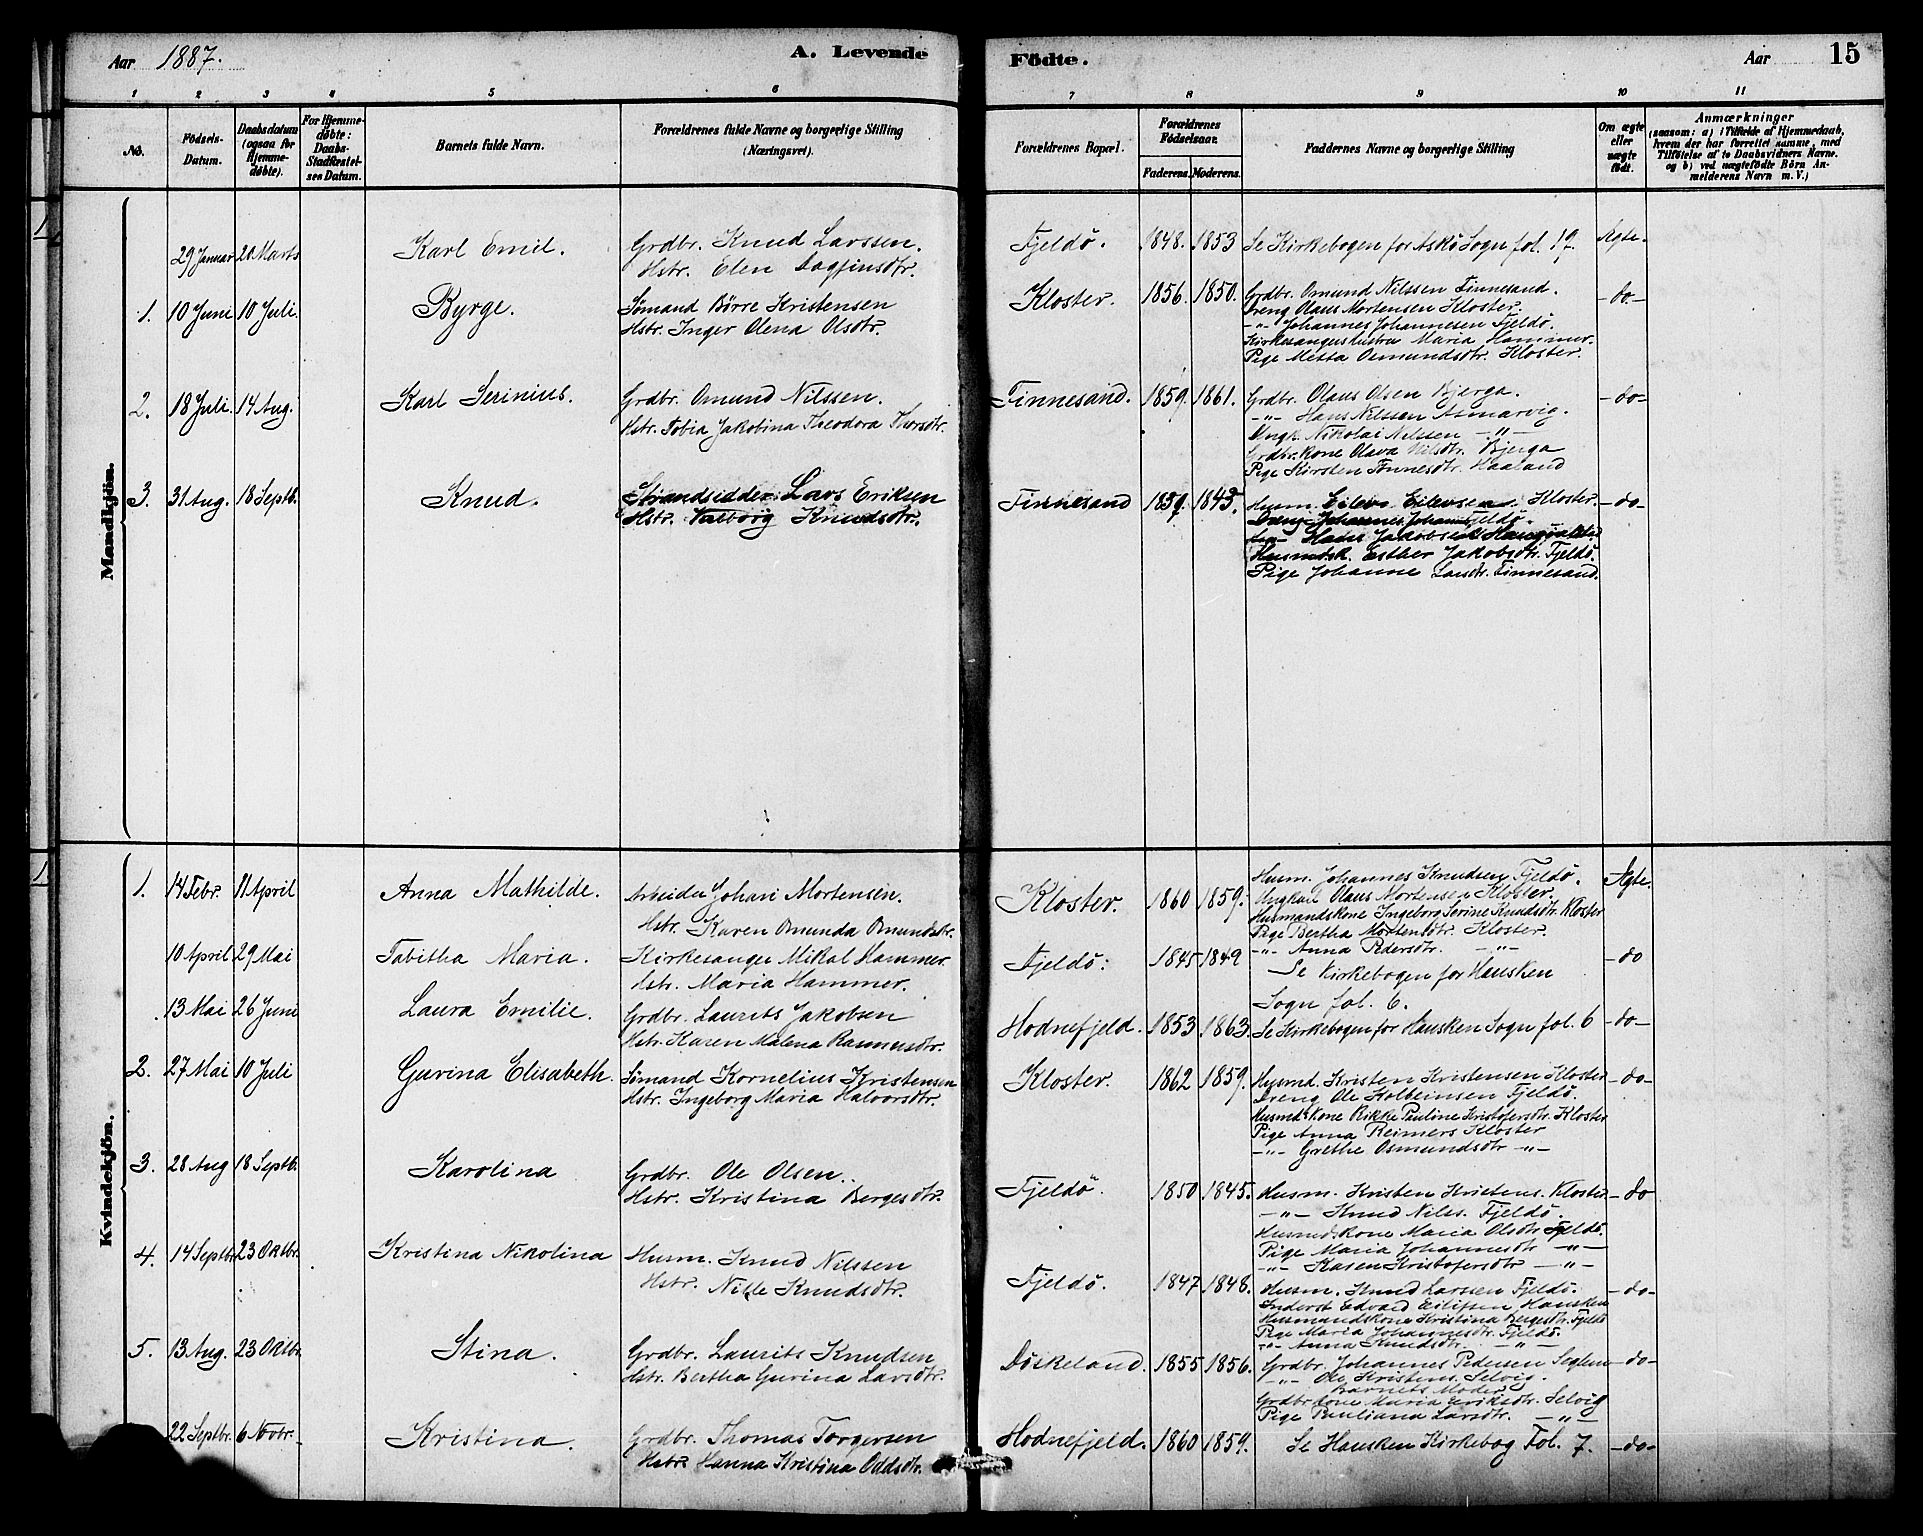 Aar 1887. A. Levende Födte. Aar 15
1 2 3 4 5 6 7 8 9 10 11
No. Födsels-Datum. Daabsdatum (ogsaa for Hjemmedöbte). For Hjemmedöbte: Daabs-Stadfæstelses Datum. Barnets fulde Navn. Forældrenes fulde Navne og borgerlige Stilling (Næringsvei). Forældrenes Bopæl. Forældrenes Födselsaar. Faderens. Moderens. Faddernes Navne og borgerlige Stilling Om ægte eller uægte födt. Anmærkninger (saasom: a) i Tilfælde af Hjemmedaab, hvem der har forrettet samme, med Tilföielse af to Daabsvidners Navne. og b) ved uægtefödte Börn Anmelderens Navn m. V.)
Mandkjön.
29 Januar 20 Marts Karl Emil. Grdbr. Knud Larssen. Fjeldö. 1848. 1853 Se Kirkebogen for Askö Sogn fol. 19. Ægte.
Hstr. Elen Dagfinsdtr.
1. 10 Juni 10 Juli Byrge. Sömand Börre Kristensen Kloster. 1856. 1850. Grdbr. Omund Nilssen Finnesand. -do-
Hstr. Inger Olena Olsdtr. Dreng Olaus Mortensen Kloster.
-"- Johannes Johannesen Fjeldö.
Kirkesangerhustru Maria Hammer.
Pige Metta Osmundsdtr. Kloster.
2. 18 Juli 14 Aug. Karl Serinius. Grdbr. Omund Nilssen. Finnesand. 1859. 1861. Grdbr. Olaus Olsen Bjerga. -do-
Hstr. Tobia Jakobina Theodora Thorsdtr. -"- Hans Nilssen Asmarvig.
Ungk. Nikolai Nilssen -"-
Grdbr. Kone Olava Nilsdtr. Bjerga
Pige Kirsten Tönnesdtr. Haaland
3. 31 Aug. 18 Septb. Knud. Strandsidder Lars Eriksen Finnesand 1843. Husm. Eilev Eilevsen Kloster. -do-
Hstr. Valborg Knudsdtr. Dreng Johannes Johans. Fjeldö.
Hans Jakobsen
Husmdsk. Esther Jakobsdtr. Fjeldö.
Pige Johanne Larsdtr. Finnesand.
Kvindekjön.
1. 14 Febr. 11 April Anna Mathilde. Arbeider Johan Mortensen. Kloster. 1860 1859. Husm. Johannes Knudsen Fjeldö. Ægte.
Hstr. Karen Omunda Omundsdtr. Ungkarl Olaus Mortensen Kloster.
Husmandskone Ingeborg Serine Knudsdtr. Kloster
Pige Bertha Mortensdtr. Kloster.
-"- Anna Pedersdtr. -"-
10 April 29 Mai Tabitha Maria. Kirkesanger Mikal Hammer. Fjeldö: 1845 1849 Se Kirkebogen for Hausken -do
Hstr. Maria Hammer. Sogn fol. 6.
13 Mai 26 Juni Laura Emilie. Grdbr. Laurits Jakobsen Hodnefjeld. 1853. 1863. Se Kirkebogen for Hausken Sogn fol. 6 -do-
Hstr. Karen Malena Rasmusdtr.
2. 27 Mai 10 Juli Gurina Elisabeth. Sömand Kornelius Kristensen Kloster. 1862 1859. Husmd. Kristen Kristensen Kloster -do-
Hstr. Ingeborg Maria Halvorsdtr. Dreng Ole Kolbeinsen Fjeldö.
Husmds Kone Rikke Pauline Kristofersdtr. Kloster
Pige Anna Reimers Kloster
-"- Grethe Osmundsdtr -"-
3. 28 Aug 18 Septb. Karolina Grdbr. Ole Olsen. Fjeldö. 1850 1845. Husm. Kristen Kristens. Kloster. -do
Hstr. Kristina Bergesdtr. -"- Knud Nils. Fjeldö.
Husmdskone Maria Olsdtr Fjeldö.
Pige Maria Johannesdtr -"-
-"- Karen Kristofersdtr -"-
4. 14 Septbr. 23 Oktbr. Kristina Nikolina Husm. Knud Nilssen Fjeldö. 1847 1848. Husm. Knud Larssen Fjeldö. -do-
Hstr. Nille Knudsdtr. Inderst Edvard Eilifsen Hausken
Husmandskone Kristina Bergesdtr. Fjeldö
Pige Maria Johannesdtr. Fjeldö.
-"- Anna Knudsdtr. -"-
5. 13 Aug. 23 Oktbr. Stina. Grdbr. Laurits Knudsen Döskeland. 1855 1856. Grdbr. Johannes Pedersen Seglem -do-
Hstr. Bertha Gurina Larsdtr. -"- Ole Kristens. Selvig.
Barnets Moder
Grdbr Kone Maria Eriksdtr. Selvig
Pige Pauliana Larsdtr. -"-
22 Septbr. 6 Novbr. Kristina. Grdbr. Thomas Torgersen Hodnefjeld. 1860 1859. Se Hausken Kirkebog Fol. 7. -do-
Hstr Hanna Kristina Oddsdtr.